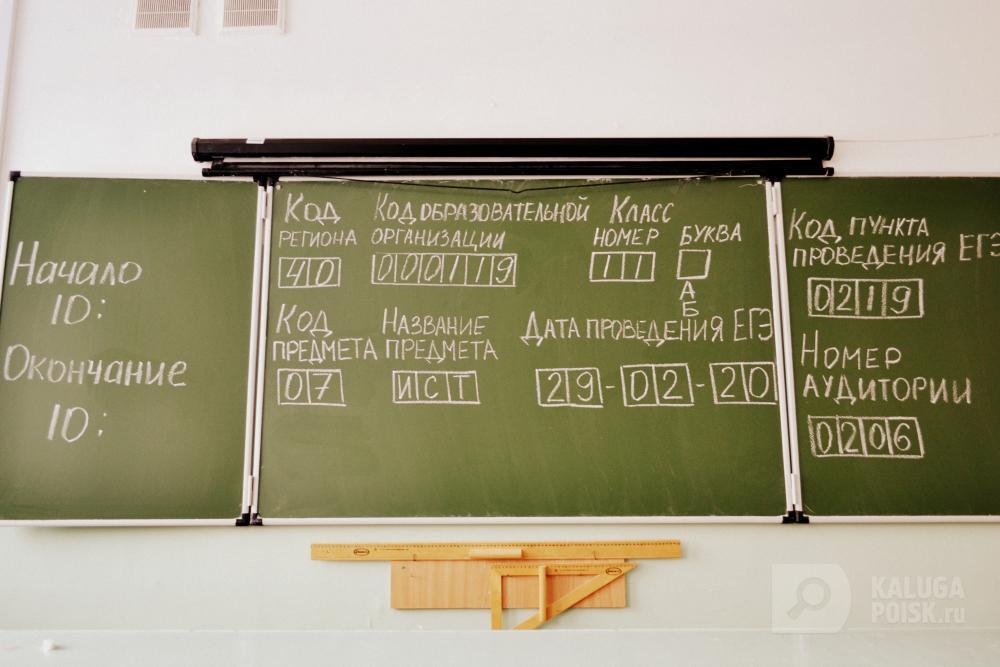 Начало
10:
Окончание
10:
Код
региона
40
Код образовательной
организации
000119
Класс
номер
11
буква
А
Б
Код
предмета
07
Название
предмета
ИСТ
Дата проведения ЕГЭ
29-02-20
Код пункта
проведения ЕГЭ
0219
Номер
аудитории
0206
KALUGA
POISK.ru